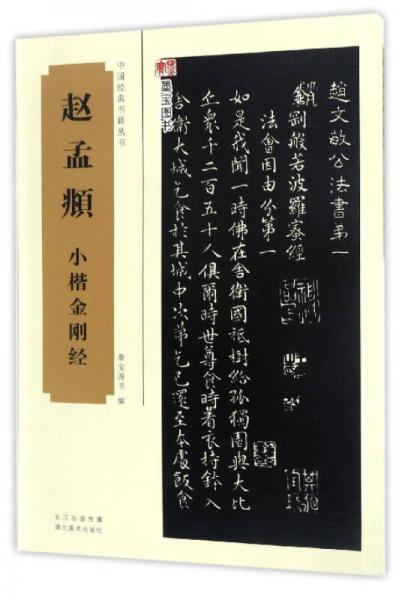 中国经典书画丛书
赵孟頫
小楷金刚经
墨宝图书 编
长江出版传媒
湖北美术出版社
墨宝图书
趙文敏公法書弟一
金剛般若波羅蜜經
法會因由分第一
如是我聞一時佛在舍衛國祇樹給孤獨園與大比
丘衆千二百五十人俱爾時世尊食時著衣持鉢入
舍衛大城乞食於其城中次第乞已還至本處飯食